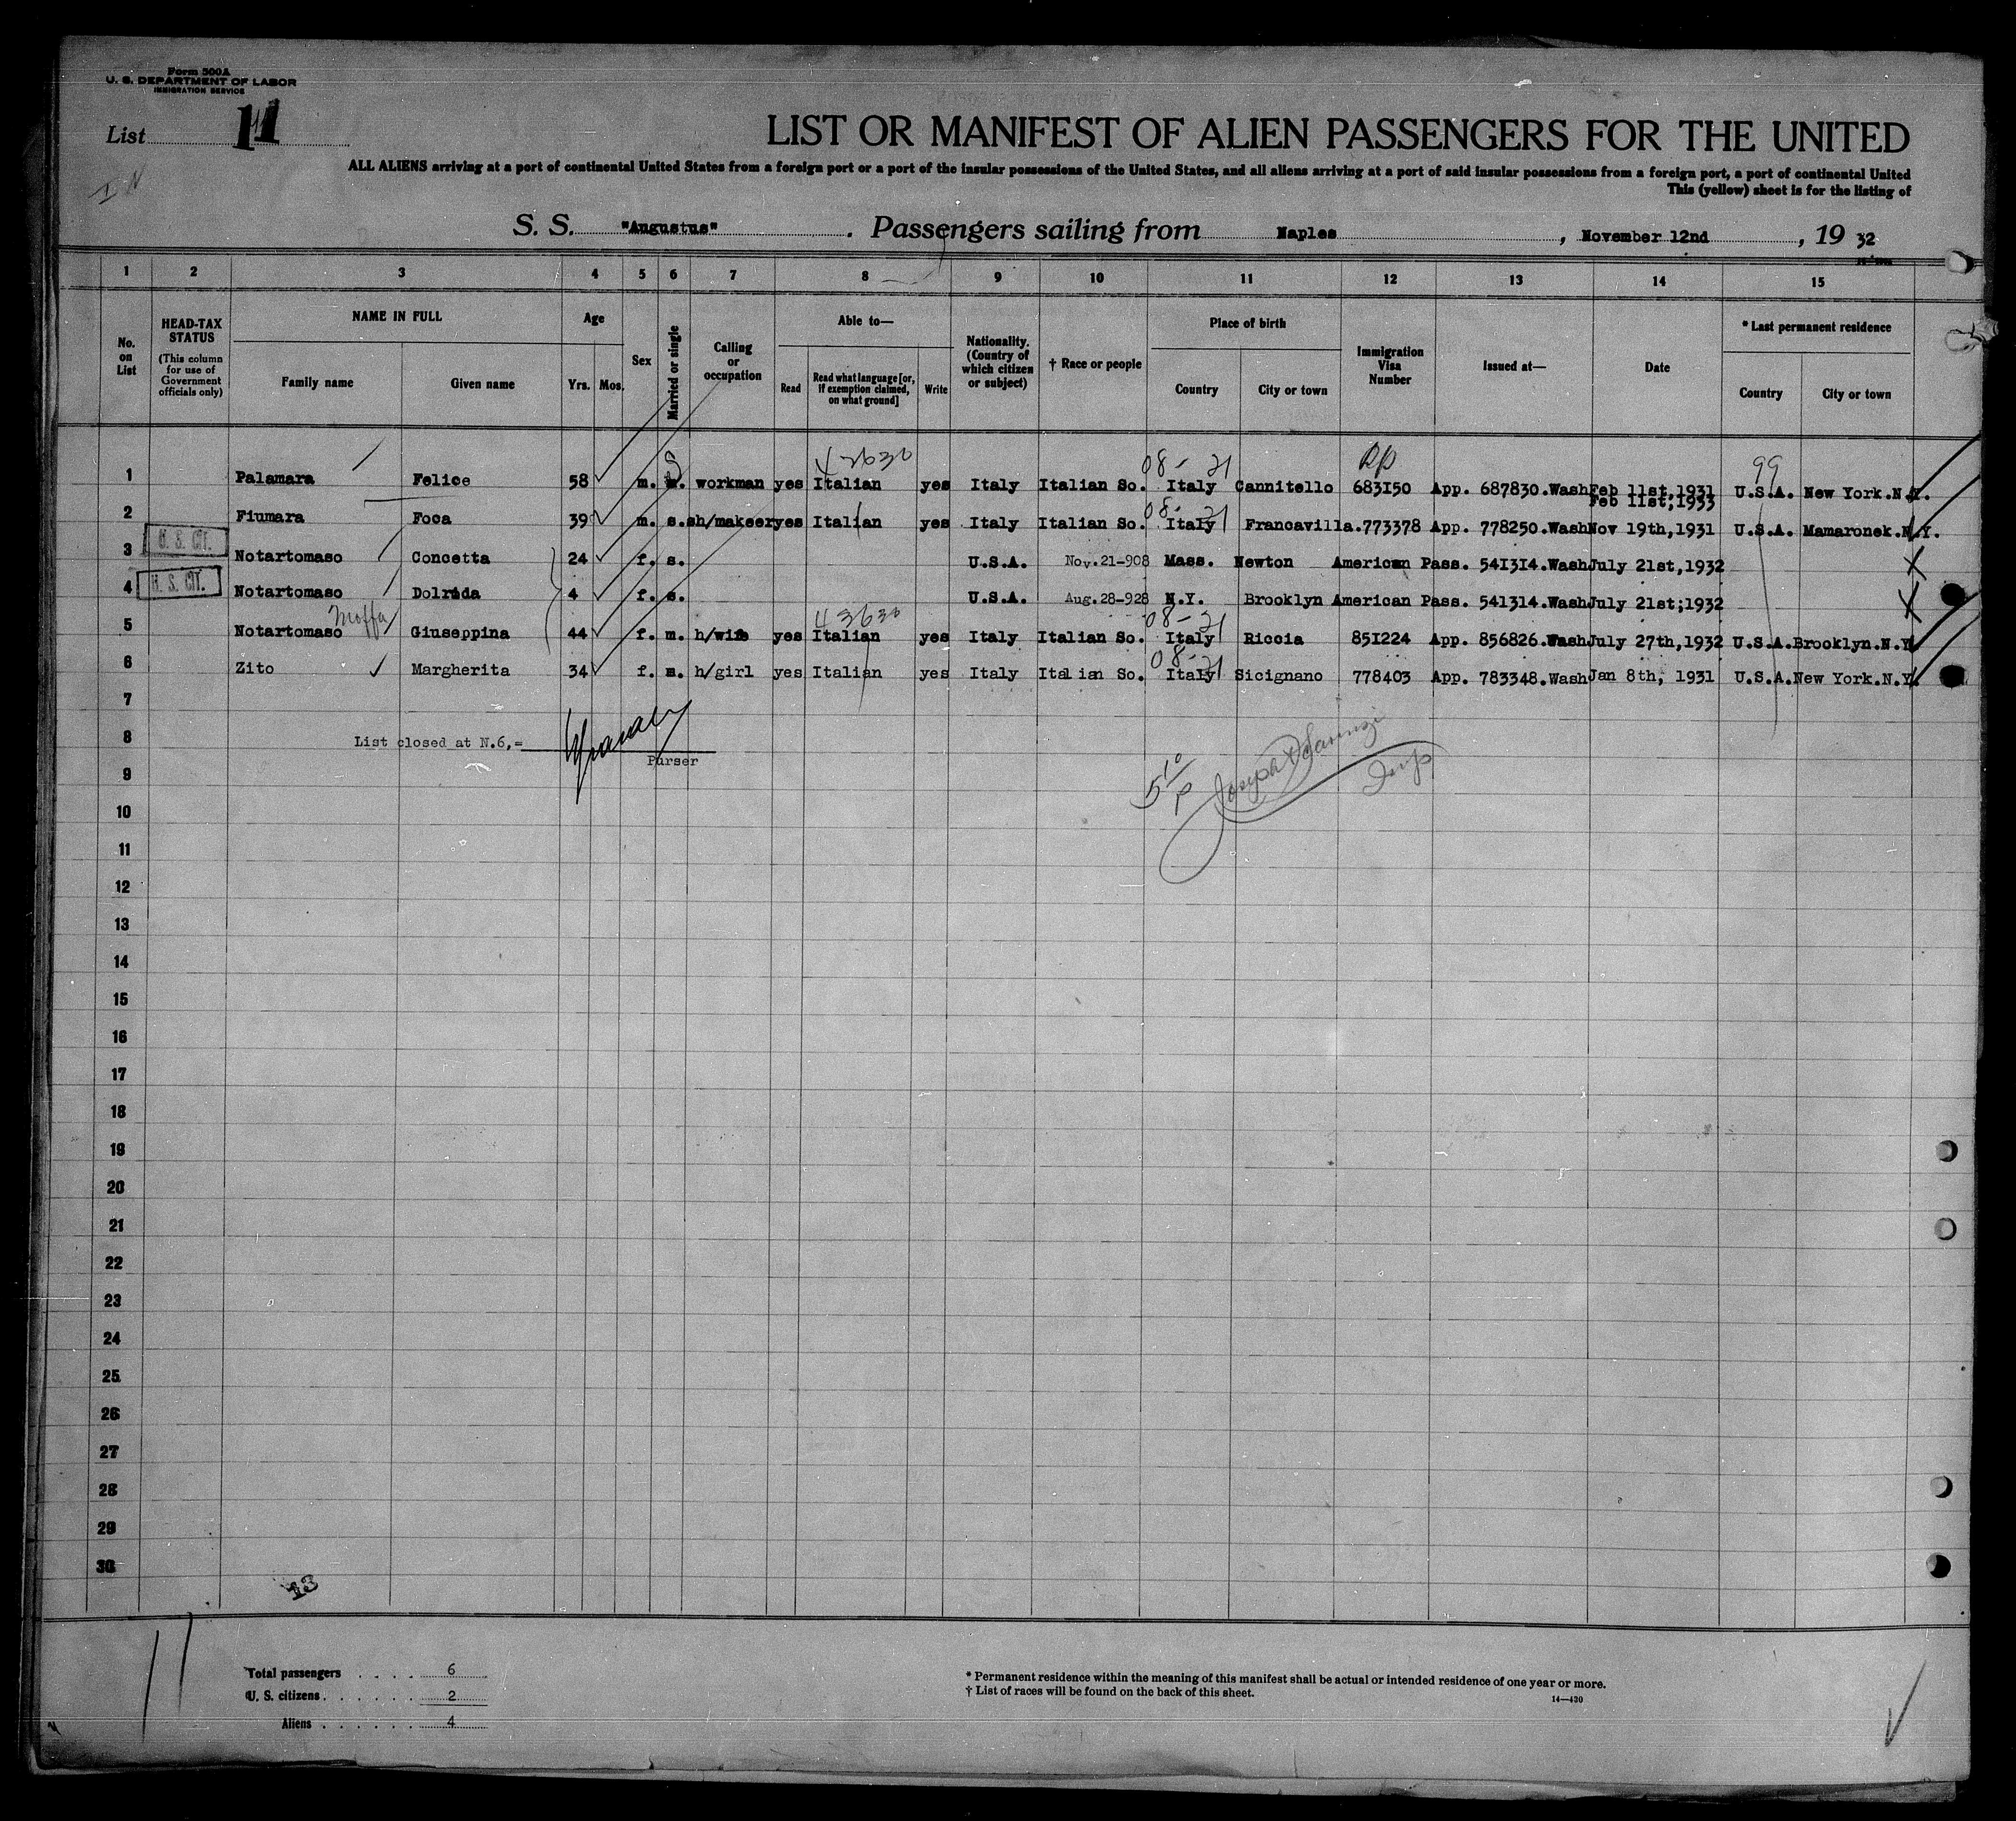 Form 500A
U. S. DEPARTMENT OF LABOR
IMMIGRATION SERVICE
List 11
LIST OR MANIFEST OF ALIEN PASSENGERS FOR THE UNITED
ALL ALIENS arriving at a port of continental United States from a foreign port or a port of the insular possessions of the United States, and all aliens arriving at a port of said insular possessions from a foreign port, a port of continental United
This (yellow) sheet is for the listing of
S. S. "Augustus". Passengers sailing from Naples, November 12nd, 19 32
1 2 3 4 5 6 7 8 9 10 11 12 13 14 15
No. on List
HEAD-TAX STATUS (This column for use of Government officials only)
NAME IN FULL
Family name Given name
Age
Yrs. Mos.
Sex
Married or single
Calling or occupation
Able to—
Read Read what language [or, if exemption claimed, on what ground] Write
Nationality. (Country of which citizen or subject)
† Race or people
Place of birth
Country City or town
Immigration Visa Number
Issued at—
Date
* Last permanent residence
Country City or town
43630 08- 21 99
1 Palamara Felice 58 m. workman yes Italian yes Italy Italian So. Italy Cannitello 683150 App. 687830.Wash Feb 11st,1931 U.S.A. New York.N.Y.
Feb 11st;1933
08- 21
2 Fiumara Foca 39 m. s. sh/makeer yes Italian yes Italy Italian So. Italy Francavilla. 773378 App. 778250.Wash Nov 19th,1931 U.S.A. Mamaronek.N.Y.
U. S. CIT.
3 Notartomaso Concetta 24 f. s. U.S.A. Nov.21-908 Mass. Newton American Pass. 541314.Wash July 21st,1932
U. S. CIT.
4 Notartomaso Dolrida 4 f. s. U.S.A. Aug.28-928 N.Y. Brooklyn American Pass. 541314.Wash July 21st;1932
Moffa 43630 08- 21
5 Notartomaso Giuseppina 44 f. m. h/wife yes Italian yes Italy Italian So. Italy Riccia 851224 App. 856826.Wash July 27th,1932 U.S.A. Brooklyn.N.Y.
08- 21
6 Zito Margherita 34 f. m. h/girl yes Italian yes Italy Italian So. Italy Sicignano 778403 App. 783348.Wash Jan 8th, 1931 U.S.A. New York.N.Y.
7
8 List closed at N.6,=
Purser
9
10
11
12
13
14
15
16
17
18
19
20
21
22
23
24
25
26
27
28
29
30
13
Total passengers . . . . 6
U. S. citizens . . . . . . 2
Aliens . . . . . . 4
* Permanent residence within the meaning of this manifest shall be actual or intended residence of one year or more.
† List of races will be found on the back of this sheet.
14—430